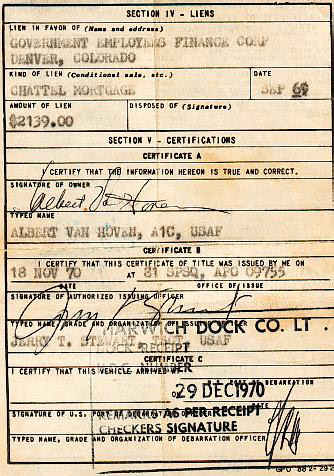 SECTION IV - LIENS
LIEN IN FAVOR OF (Name and address)
GOVERNMENT EMPLOYEES FINANCE CORP
DENVER, COLORADO
KIND OF LIEN (Conditional sale, etc.) DATE
CHATTEL MORTGAGE SEP 69
AMOUNT OF LIEN DISPOSED OF (Signature)
$2139.00
SECTION V - CERTIFICATIONS
CERTIFICATE A
I CERTIFY THAT THE INFORMATION HEREON IS TRUE AND CORRECT.
SIGNATURE OF OWNER
Albert Van Hoven
TYPED NAME
ALBERT VAN HOVEN, A1C, USAF
CERTIFICATE B
I CERTIFY THAT THIS CERTIFICATE OF TITLE WAS ISSUED BY ME ON
18 NOV 70 AT 81 SPSQ, APO 09755
DATE OFFICE OF ISSUE
SIGNATURE OF AUTHORIZED ISSUING OFFICER
TYPED NAME, GRADE AND ORGANIZATION OF ISSUING OFFICER
HARWICH DOCK CO. LT.
JERRY T. USAF
RECEIPT
NUMBER
CERTIFICATE C
I CERTIFY THAT THIS VEHICLE ARRIVED AT
DEBARKATION
ON
29 DEC 1970
SIGNATURE OF U.S. PORT OF
REMARKS AS PER RECEIPT
CHECKERS SIGNATURE
TYPED NAME, GRADE AND ORGANIZATION OF DEBARKATION OFFICER
GPO 882-29